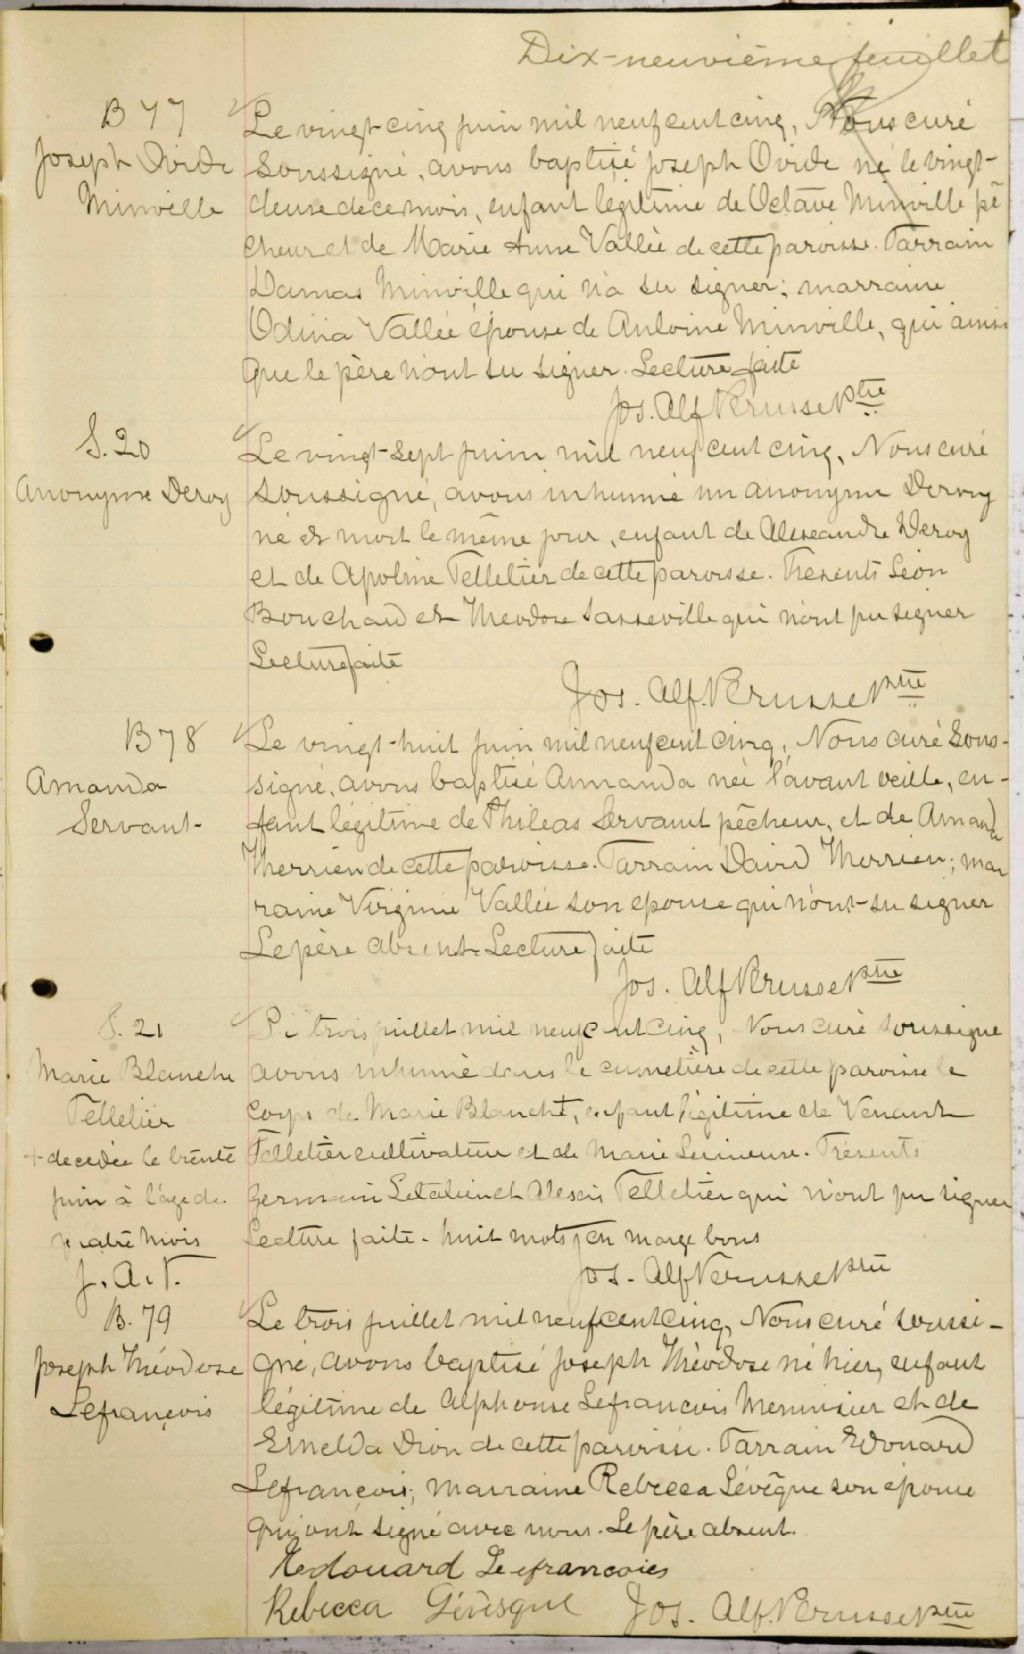 Dix-neuvième feuillet
B 77
Joseph Ovide
Minville
Le vingt-cinq juin mil neuf cent cinq, Nous curé
soussigné, avons baptisé Joseph Ovide né le vingt-
deuse de ce mois, enfant légitime de Octave Minville pê
cheur et de Marie Anne Vallée de cette paroisse. Parrain
Damas Minville qui n'a su signer; marraine
Odina Vallée épouse de Antoine Minville, qui ainsi
que le père n'ont su signer. Lecture faite
Jos. Alf Verusse Ptre
S. 20
Anonyme Deroy
Le vingt-sept juin mil neuf cent cinq, Nous curé
soussigné, avons inhumé un anonyme Deroy
né et mort le même jour, enfant de Alexandre Deroy
et de Apoline Pelletier de cette paroisse. Présents Léon
Bouchard et Théodose Sasseville qui n'ont pu signer
Lecture faite
Jos. Alf. Verusse Ptre
B 78
Amanda
Servant
Le vingt-huit juin mil neuf cent cinq, Nous curé sous-
signé, avons baptisé Amanda née l'avant veille, en-
fant légitime de Phileas Servant pêcheur, et de Amanda
Therrien de cette paroisse. Parrain David Therrien; mar
raine Virginie Vallée son epouse qui n'ont su signer
Le père absent. Lecture faite
Jos. Alf Verusse Ptre
S. 21
Marie Blanche
Pelletier
+ decedée le trente
juin à l'age de
quatre mois
J. A. V.
Le trois juillet mil neuf cent cinq, Nous curé soussigné
avons inhumé dans le cimetière de cette paroisse le
corps de Marie Blanche +, enfant légitime de Venant
Pelletier cultivateur et de Marie Lemieux. Présents
Germain et Alexis Pelletier qui n'ont pu signer
Lecture faite - huit mots en marge bons
Jos. Alf Verusse Ptre
B. 79
Joseph Théodose
Lefrançois
Le trois juillet mil neuf cent cinq, Nous curé soussi-
gné, avons baptisé Joseph Théodose né hier, enfant
légitime de Alphonse Lefrancois Menuisier et de
Emelda Dion de cette paroisse. Parrain Edouard
Lefrançois; marraine Rebecca Lévêque son épouse
qui ont signé avec nous. Le père absent.
Hedouard Lefrancois
Rebecca Lévesque Jos. Alf. Verusse Ptre